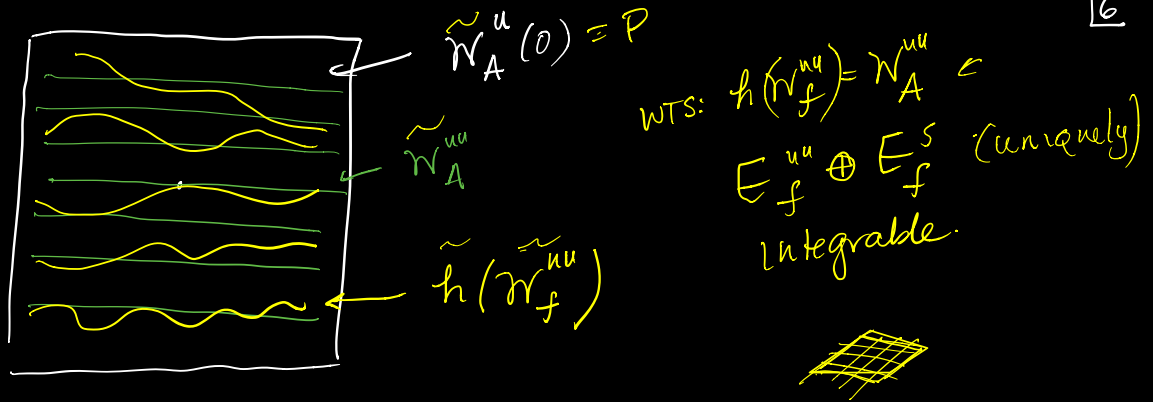 6
W̃_A^u (0) = P
WTS: h(W_f^{uu}) = W_A^{uu} <
W̃_A^{uu}
E_f^{uu} ⊕ E_f^s (uniquely)
integrable.
h̃(W̃_f^{uu})